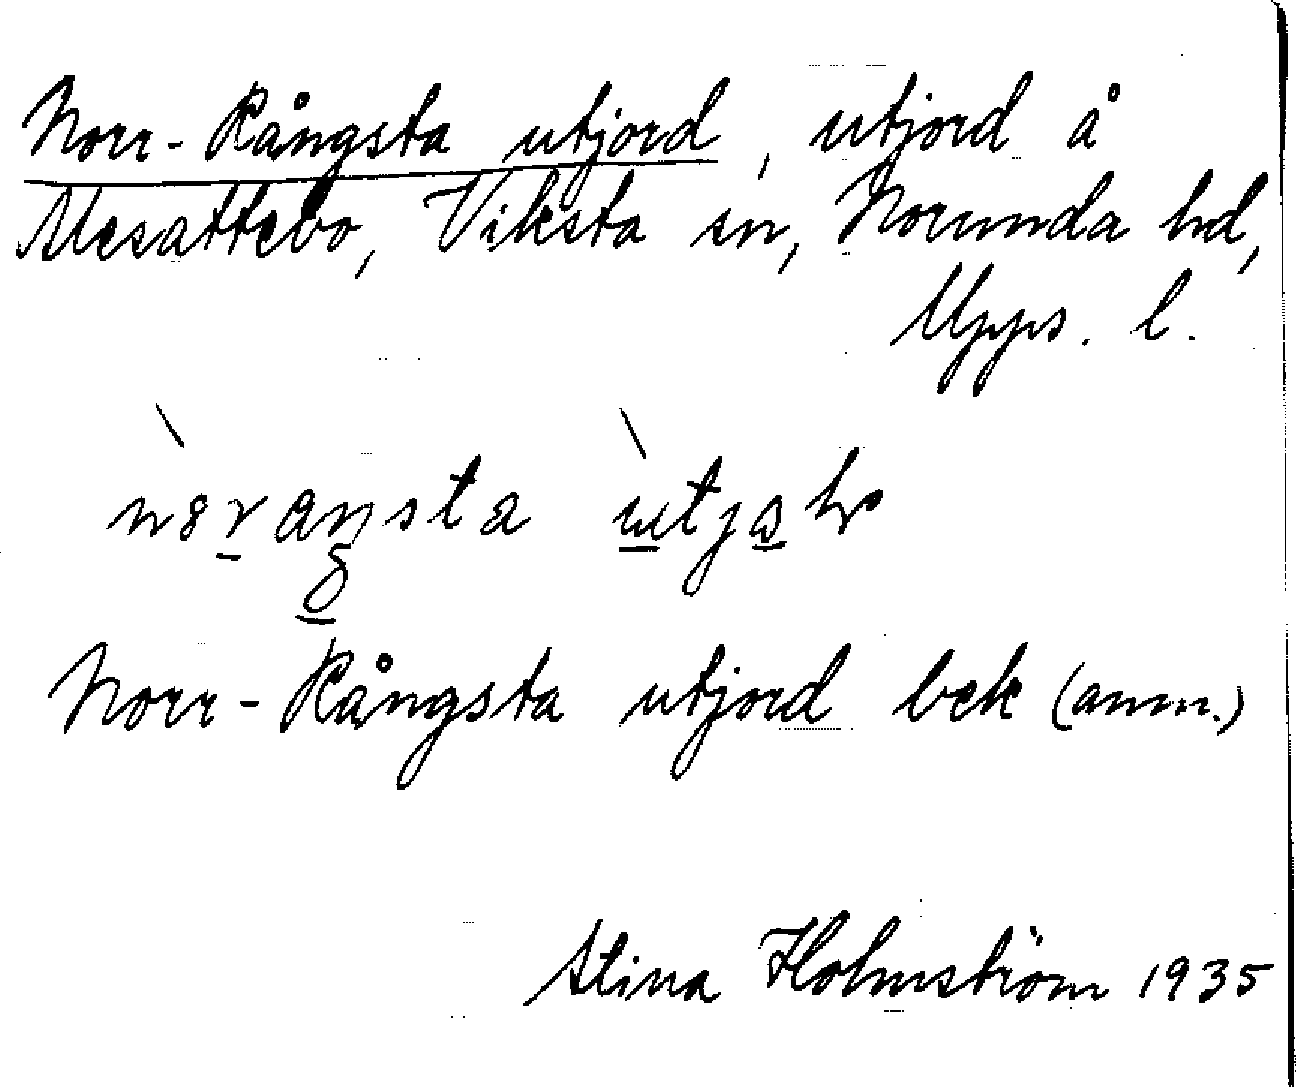 Norr-Rångsta utjord, utjord å
Mesättebo, Viksta sn, Norunda hd,
Upps. l.
Norr-Rångsta utjord bek (anm.)
Stina Holmström 1935